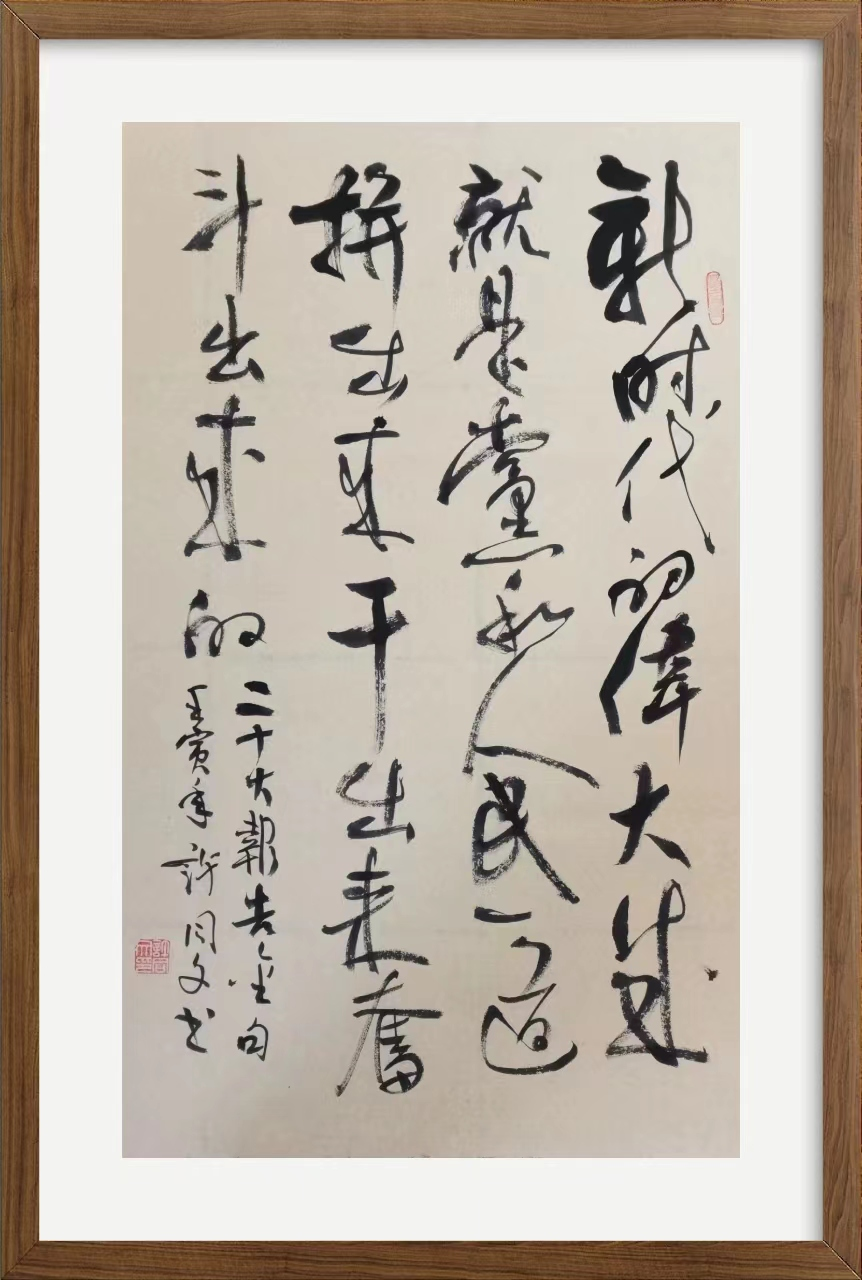 新时代的偉大成
就是黨和人民一道
拼出来干出来奮
斗出来的
二十大報告金句
壬寅年許同文书